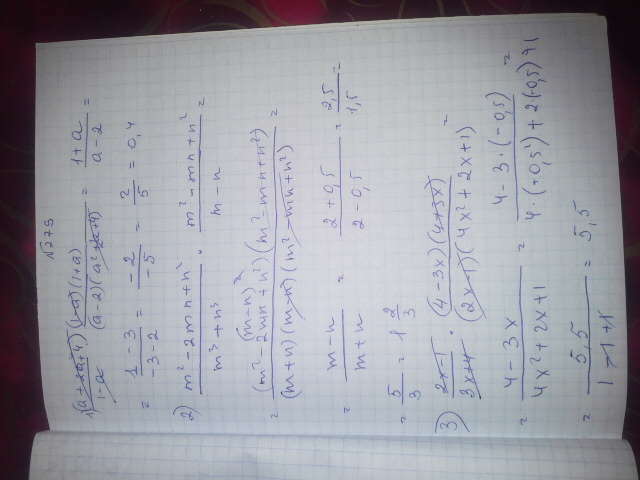 № 275
1) (a² + 2a + 4)/(1 - a) · (1 - a)(1 + a)/((a - 2)(a² + 2a + 4)) = (1 + a)/(a - 2) =
= (1 - 3)/(-3 - 2) = (-2)/(-5) = 2/5 = 0,4
2) (m² - 2mn + n²)/(m³ + n³) · (m² - mn + n²)/(m - n) =
(m - n)²
= (m² - 2mn + n²)(m² - mn + n²)/((m + n)(m - n)(m² - mn + n²)) =
= (m - n)/(m + n) = (2 + 0,5)/(2 - 0,5) = 2,5/1,5 =
= 5/3 = 1 2/3
3) (2x - 1)/(3x + 4) · (4 - 3x)(4 + 3x)/((2x - 1)(4x² + 2x + 1)) =
= (4 - 3x)/(4x² + 2x + 1) = (4 - 3·(-0,5))/(4·(-0,5²) + 2·(-0,5) + 1) =
= 5,5/(1 - 1 + 1) = 5,5